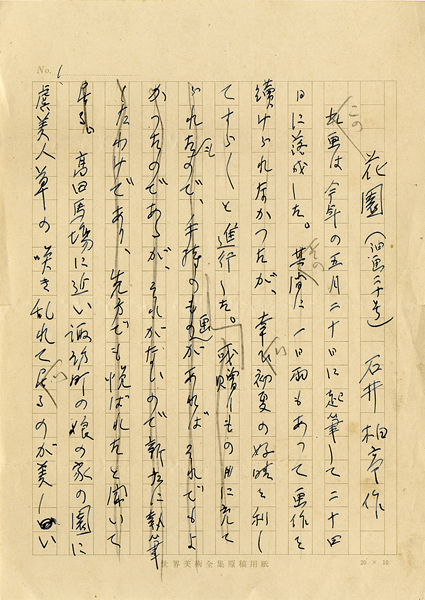 No. 1
花園(油画二十号) 石井柏亭作
此画は今年の五月二十日に起筆して二十四
この
日に落成した。其間に一日雨もあって画作を
その
續けられなかつたが、幸ひ初夏の好晴を利し
い
てすらすらと進行した。或贈りもの用に充て
られたので、手持のものがあればそれでもよ
も
画
かつたのであるが、それがないので新たに執筆
したわけであり、先方でも悦ばれたと聞いて
居る。高田馬場に近い諏訪町の娘の家の園に
虞美人草の咲き乱れて居るのが美しい
い
世界美術全集原稿用紙
20 × 18